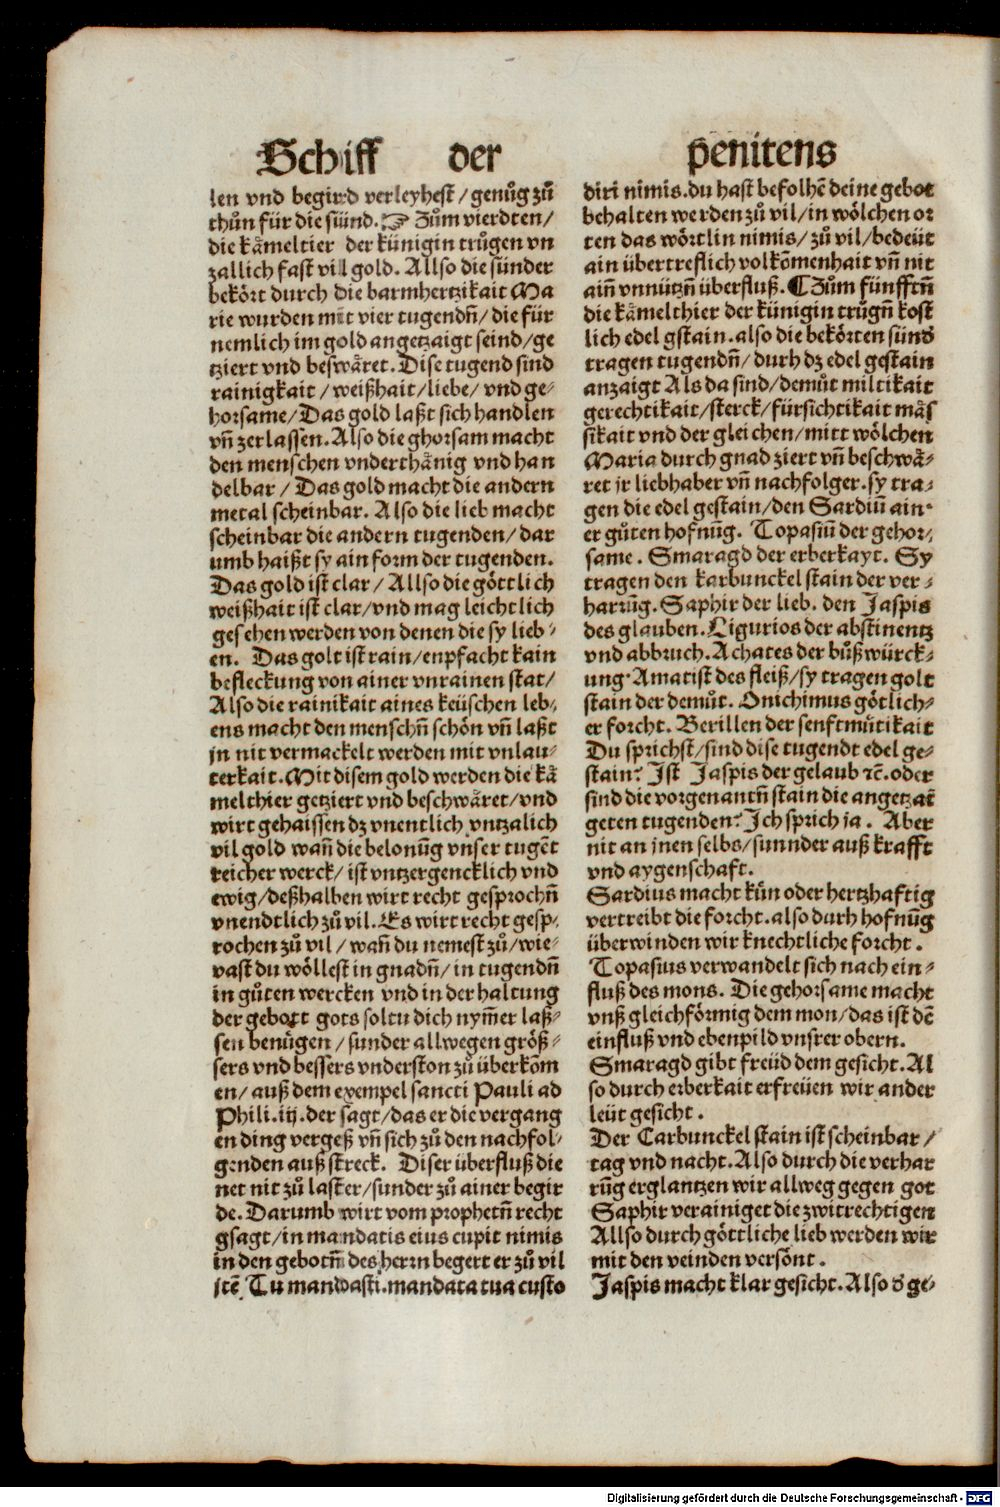 Schiff der penitens
len vnd begird verleyhest / genůg zů
thůn für die sünd. ☞ Zům vierdten /
die kämeltier der künigin trůgen vn
zallich fast vil gold. Allso die sünder
bekört durch die barmhertzikait Ma
rie wurden mit vier tugendn̄ / die für
nemlich im gold angetzaigt seind / ge
tziert vnd beswäret. Dise tugend sind
rainigkait / weißhait / liebe / vnd ge-
horsame / Das gold laßt sich handlen
vn̄ zerlassen. Also die ghorsam macht
den menschen vnderthänig vnd han
delbar / Das gold macht die andern
metal scheinbar. Also die lieb macht
scheinbar die andern tugenden / dar
umb haißt sy ain form der tugenden.
Das gold ist clar / Allso die göttlich
weißhait ist clar / vnd mag leichtlich
gesehen werden von denen die sy lieb-
en. Das golt ist rain / enpfacht kain
befleckung von ainer vnrainen stat /
Also die rainikait aines keüschen leb-
ens macht den menschn̄ schön vn̄ laßt
jn nit vermackelt werden mit vnlau-
terkait. Mit disem gold werden die kä
melthier getziert vnd beschwäret / vnd
wirt gehaissen dz vnentlich vntzalich
vil gold wan̄ die belonūg vnser tugēt
reicher werck / ist vntzergencklich vnd
ewig / deßhalben wirt recht gesprochn̄
vnendtlich zů vil. Es wirt recht gesp-
rochen zů vil / wan̄ du nemest zů / wie-
vast du wöllest in gnadn̄ / in tugendn̄
in gůten wercken vnd in der haltung
der gebott gots soltu dich nym̄er laß-
sen benügen / sunder allwegen größ-
sers vnd bessers vnderston zů überkōm
en / auß dem exempel sancti Pauli ad
Phili. iij. der sagt / das er die vergang
en ding vergeß vn̄ sich zů den nachfol-
genden auß streck. Diser überfluß die
net nit zů laster / sunder zů ainer begir
de. Darumb wirt vom prophetn̄ recht
gsagt / in mandatis eius cupit nimis
in den gebotn̄ des herrn begert er zů vil
jtē Tu mandasti. mandata tua custo
diri nimis. du hast befolhē deine gebot
behalten werden zů vil / in wölchen or
ten das wörtlin nimis / zů vil / bedeüt
ain übertreflich volkōmenhait vn̄ nit
ain̄ vnnützn̄ überfluß. ¶ Zům fünfftn̄
die kämelthier der künigin trůgn̄ kost
lich edel gstain. also die bekörten sünd
tragen tugendn̄ / durh dz edel gestain
anzaigt Als da sind / demůt miltikait
gerechtikait / sterck / fürsichtikait mäs
sikait vnd der gleichen / mitt wölchen
Maria durch gnad ziert vn̄ beschwä-
ret jr liebhaber vn̄ nachfolger. sy tra-
gen die edel gestain / den Sardiū ain-
er gůten hofnūg. Topasiū der gehor-
same. Smaragd der erberkayt. Sy
tragen den karbunckel stain der ver-
harrūg. Saphir der lieb. den Jaspis
des glauben. Ligurios der abstinentz
vnd abbruch. Achates der bůßwürck-
ung. Amatist des fleiß / sy tragen golt
stain der demůt. Onichimus götlich-
er forcht. Berillen der senftmütikait
Du sprichst / sind dise tugendt edel ge-
stain? Ist Jaspis der gelaub ꝛc̄. oder
sind die vorgenantn̄ stain die angetzai
geten tugenden? Ich sprich ja. Aber
nit an jnen selbs / sunnder auß krafft
vnd aygenschaft.
Sardius macht kün oder hertzhaftig
vertreibt die forcht. also durh hofnūg
überwinden wir knechtliche forcht.
Topasius verwandelt sich nach ein-
fluß des mons. Die gehorsame macht
vnß gleichförmig dem mon / das ist dē
einfluß vnd ebenpild vnsrer obern.
Smaragd gibt freüd dem gesicht. Al
so durch erberkait erfreüen wir ander
leüt gesicht.
Der Carbunckel stain ist scheinbar /
tag vnd nacht. Also durch die verhar
rūg erglantzen wir allweg gegen got
Saphir verainiget die zwitrechtigen
Allso durch göttliche lieb werden wir
mit den veinden versönt.
Jaspis macht klar gesicht. Also d ge-
Digitalisierung gefördert durch die Deutsche Forschungsgemeinschaft - DFG